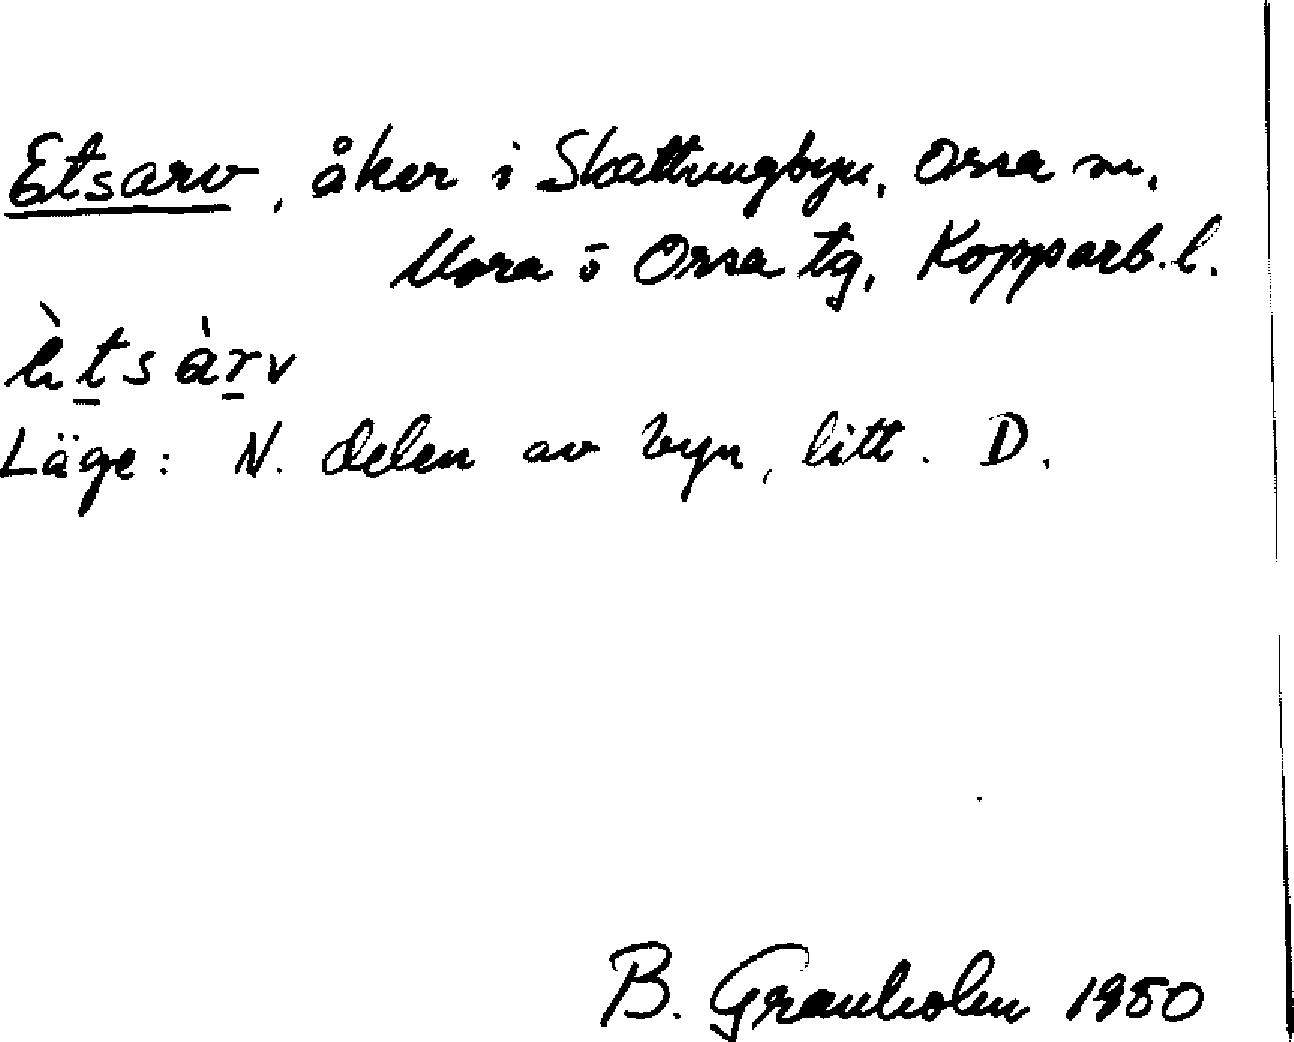 Etsarv, åker i Skattungbyn, Orsa sn,
Mora o Orsa tg, Kopparb. l.
ètsàrv
Läge: N. delen av byn, litt. D.
B. Granholm 1950